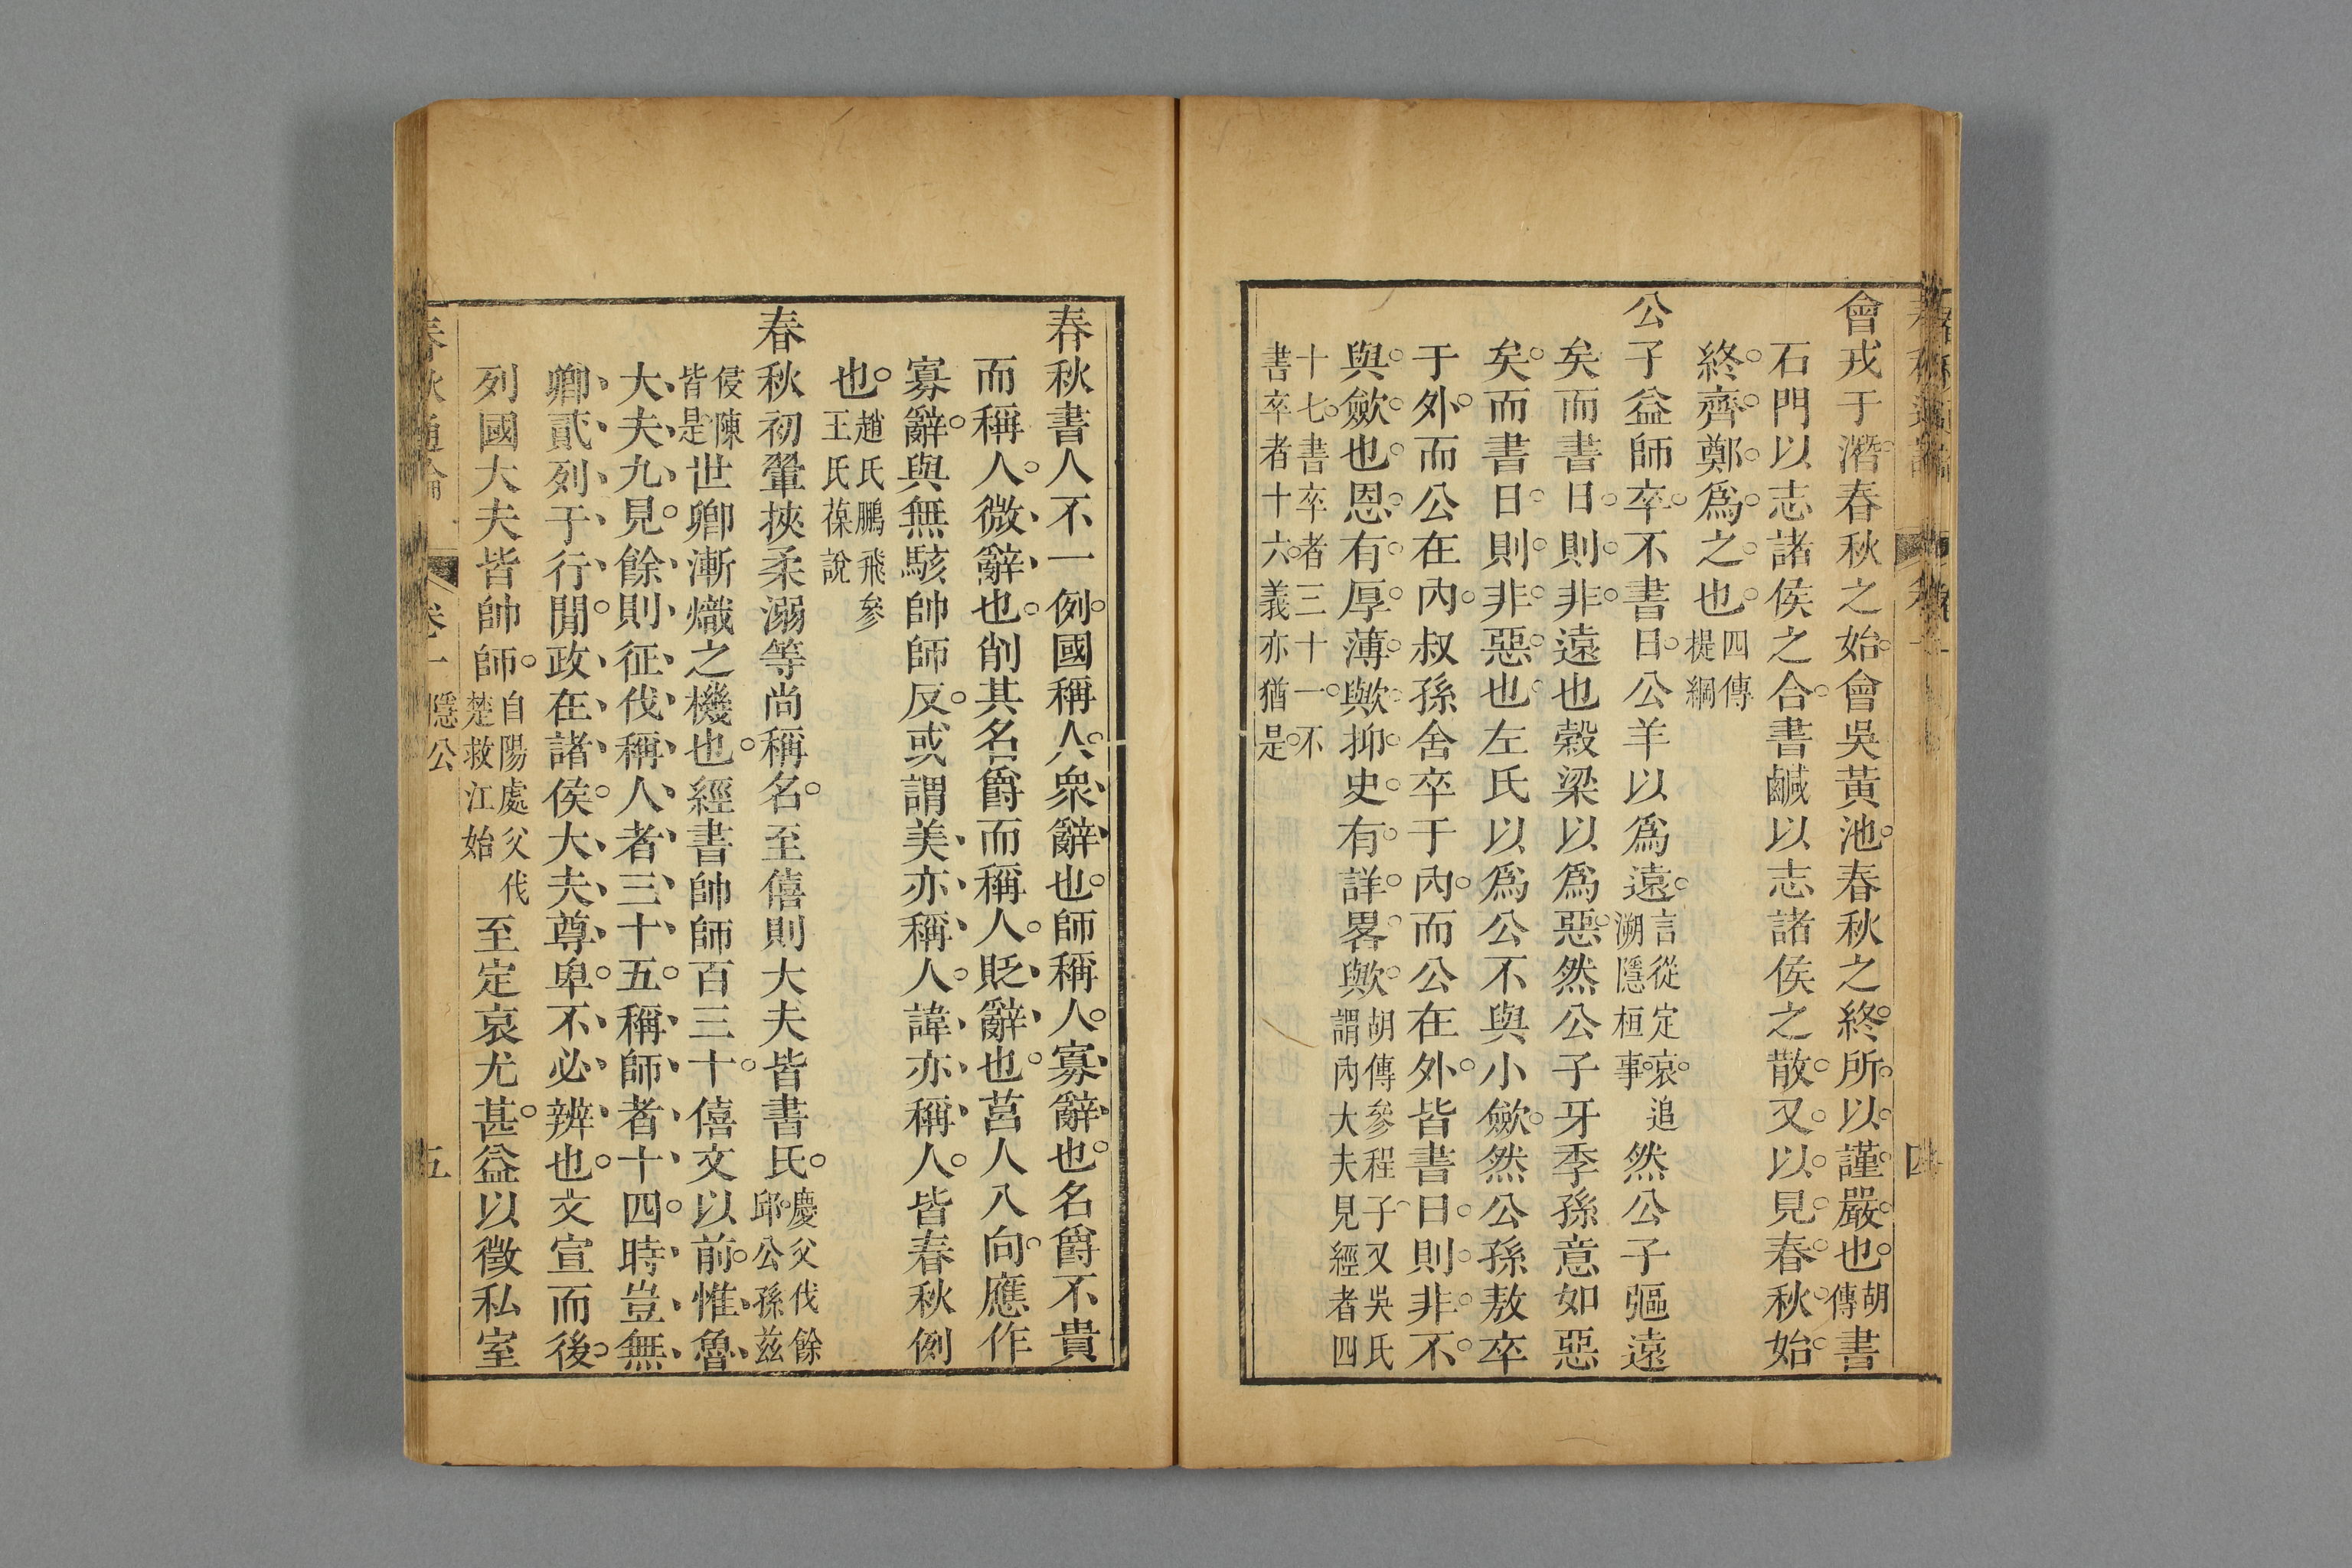 會戎于潛春秋之始會吳黃池春秋之終所以謹嚴也胡傳書
石門以志諸侯之合書鹹以志諸侯之散又以見春秋始
終齊鄭爲之也四傳提綱
公子益師卒不書日公羊以爲遠言從定哀追溯隱桓事然公子彄遠
矣而書日則非遠也穀梁以爲惡然公子牙季孫意如惡
矣而書日則非惡也左氏以爲公不與小斂然公孫敖卒
于外而公在內叔孫舍卒于內而公在外皆書日則非不
與斂也恩有厚薄歟抑史有詳畧歟胡傳參程子又吳氏謂內大夫見經者四
十七書卒者三十一不書卒者十六義亦猶是
四
春秋書人不一例國稱人衆辭也師稱人寡辭也名爵不貴
而稱人微辭也削其名爵而稱人貶辭也莒人入向應作
寡辭與無駭帥師反或謂美亦稱人諱亦稱人皆春秋例
也趙氏鵬飛參王氏葆說
春秋初翬挾柔溺等尚稱名至僖則大夫皆書氏慶父伐餘邱公孫茲
侵陳皆是世卿漸熾之機也經書帥師百三十僖文以前惟魯
大夫九見餘則征伐稱人者三十五稱師者十四時豈無
卿貳列于行閒政在諸侯大夫尊卑不必辨也文宣而後
列國大夫皆帥師自陽處父伐楚救江始至定哀尤甚益以徵私室
春秋通論 卷一 隱公 五